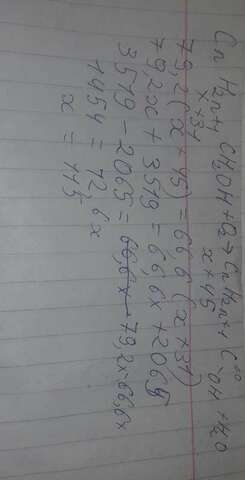 Cn H2n+1 CH2OH + O2 → Cn H2n+1 C=O OH + H2O
x + 31 x + 45
79,2 (x + 45) = 66,6 (x + 31)
79,2x + 3519 = 66,6x + 2065
3519 - 2065 = 66,6x - 79,2x
1454 = 12,6x
x = 115